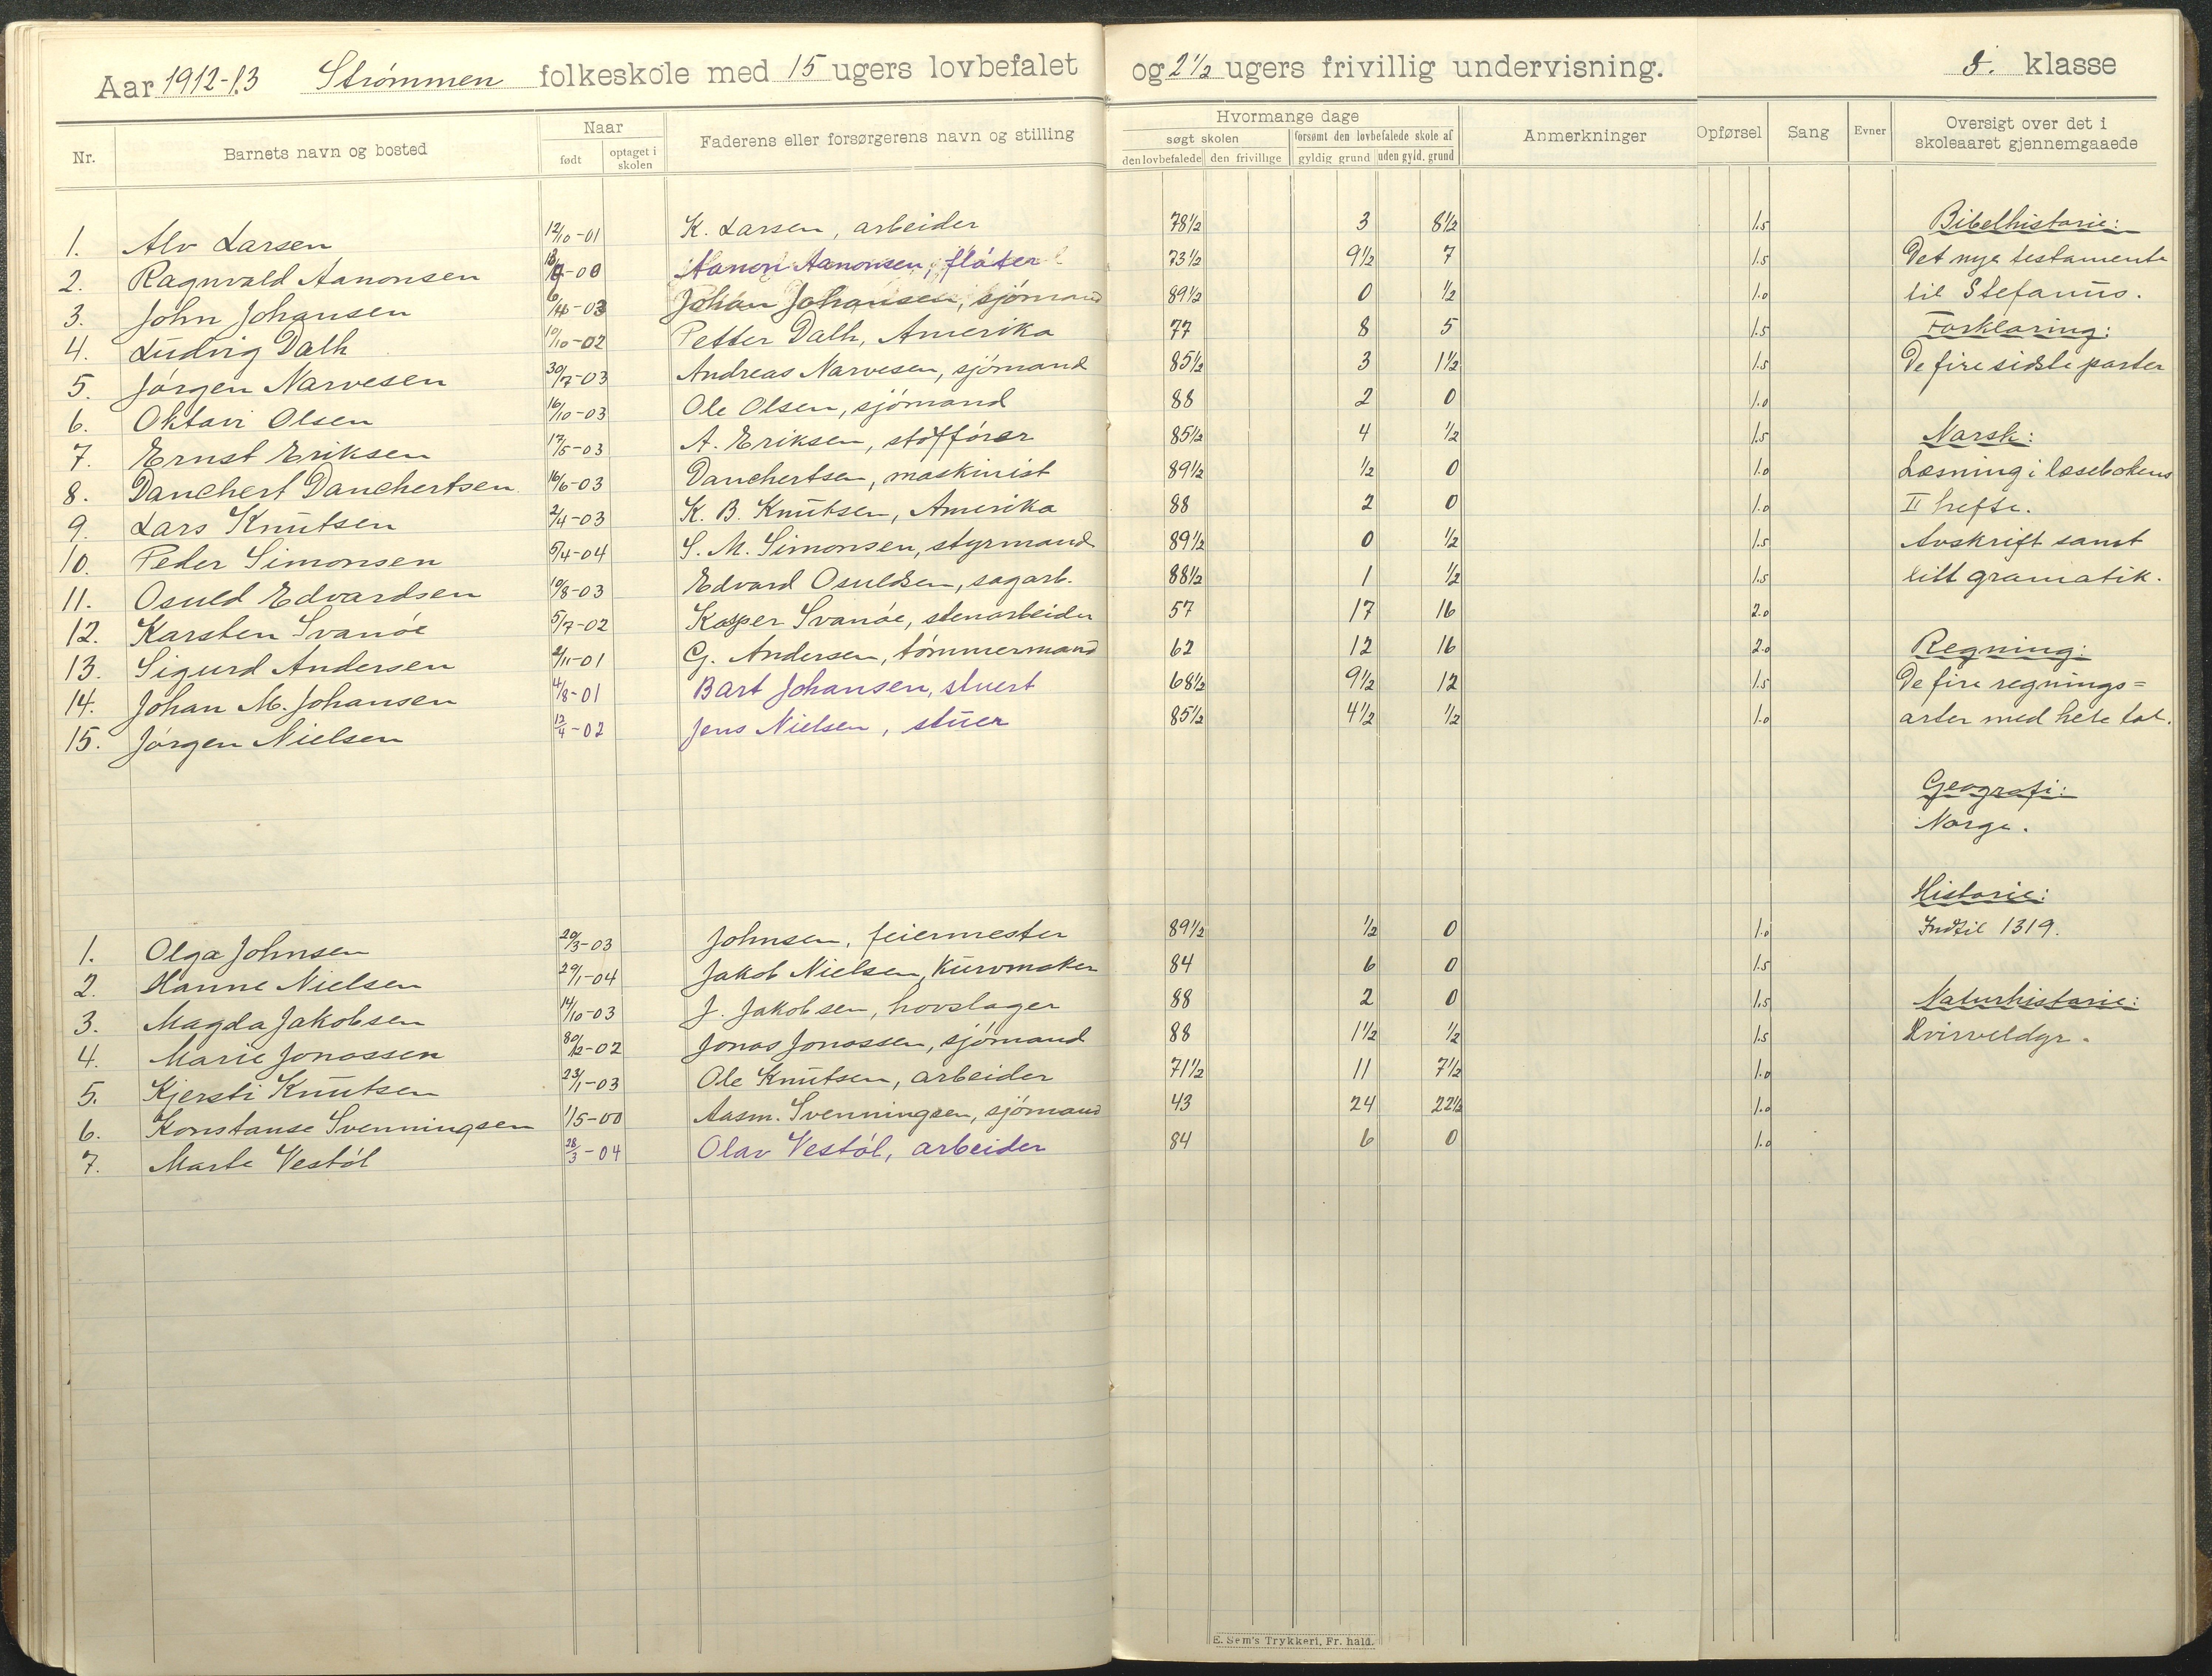 Aar 1912-13 Strømmen folkeskole med 15 ugers lovbefalet og 2½ ugers frivillig undervisning. klasse
Nr. Barnets navn og bosted Naar født optaget i skolen Faderens eller forsørgerens navn og stilling Hvormange dage søgt skolen den lovbefalede den frivillige forsømt den lovbefalede skole af gyldig grund uden gyld. grund Anmerkninger Opførsel Sang Evner Oversigt over det i skoleaaret gjennemgaaede
1. Alv Larsen 12/10-01 K. Larsen, arbeider 78½ 3 8½ 1.5 Bibelhistorie:
2. Ragnvald Aanonsen Aanon Aanonsen, fløter 73½ 9½ 7 1.5 Det nye testamente
3. John Johansen Johan Johansen, sjömand 89½ 0 ½ 1.0 til Stefanus.
4. Ludvig Dalh 10/10-02 Petter Dalh, Amerika 77 8 5 1.5 Forklaring:
5. Jørgen Narvesen 30/7-03 Andreas Narvesen, sjömand 85½ 3 1½ 1.5 De fire sidste parter
6. Oktavi Olsen 16/10-03 Ole Olsen, sjömand 88 2 0 1.0
7. Ernst Eriksen 17/5-03 A. Eriksen, 85½ 4 ½ 1.5 Norsk:
8. Danchert Danchertsen 16/6-03 Danchertsen, maskinist 89½ ½ 0 1.0 Læsning i læsebokens
9. Lars Knutsen 2/4-03 K. B. Knutsen, Amerika 88 2 0 1.0 II hefte.
10. Peder Simonsen 5/4-04 S. M. Simonsen, styrmand 89½ 0 ½ 1.5 Avskrift samt
11. Osuld Edvardsen 10/8-03 Edvard Osuldsen, sagarb. 88½ 1 ½ 1.5 litt gramatik.
12. Karsten Svanöe 5/7-02 Kasper Svanöe, stenarbeider 57 17 16 2.0
13. Sigurd Andersen 2/11-01 G. Andersen, tömmermand 62 12 16 2.0 Regning:
14. Johan M. Johansen 4/8-01 Bart Johansen, stuert 68½ 9½ 12 1.5 De fire regnings=
15. Jörgen Nielsen 12/4-02 Jens Nielsen, stuer 85½ 4½ ½ 1.0 arter med hele tal.
Geografi:
Norge.
Historie:
1. Olga Johnsen 20/3-03 Johnsen, feiermester 89½ ½ 0 1.0 Indtil 1319.
2. Hanne Nielsen 29/1-04 Jakob Nielsen, Kurvmaker 84 6 0 1.5
3. Magda Jakobsen 14/10-03 J. Jakobsen, hovslager 88 2 0 1.5 Naturhistorie:
4. Marie Jonassen 30/12-02 Jonas Jonassen, sjömand 88 1½ ½ 1.5 Hvirveldyr.
5. Kjersti Knutsen 23/1-03 Ole Knutsen, arbeider 71½ 11 7½ 1.0
6. Konstanse Svenningsen 1/5-00 Aasm. Svenningsen, sjömand 43 24 22½ 1.0
7. Marte Vestöl 28/3-04 Olav Vestöl, arbeider 84 6 0 1.0
E. Sem's Trykkeri, Fr. hald.